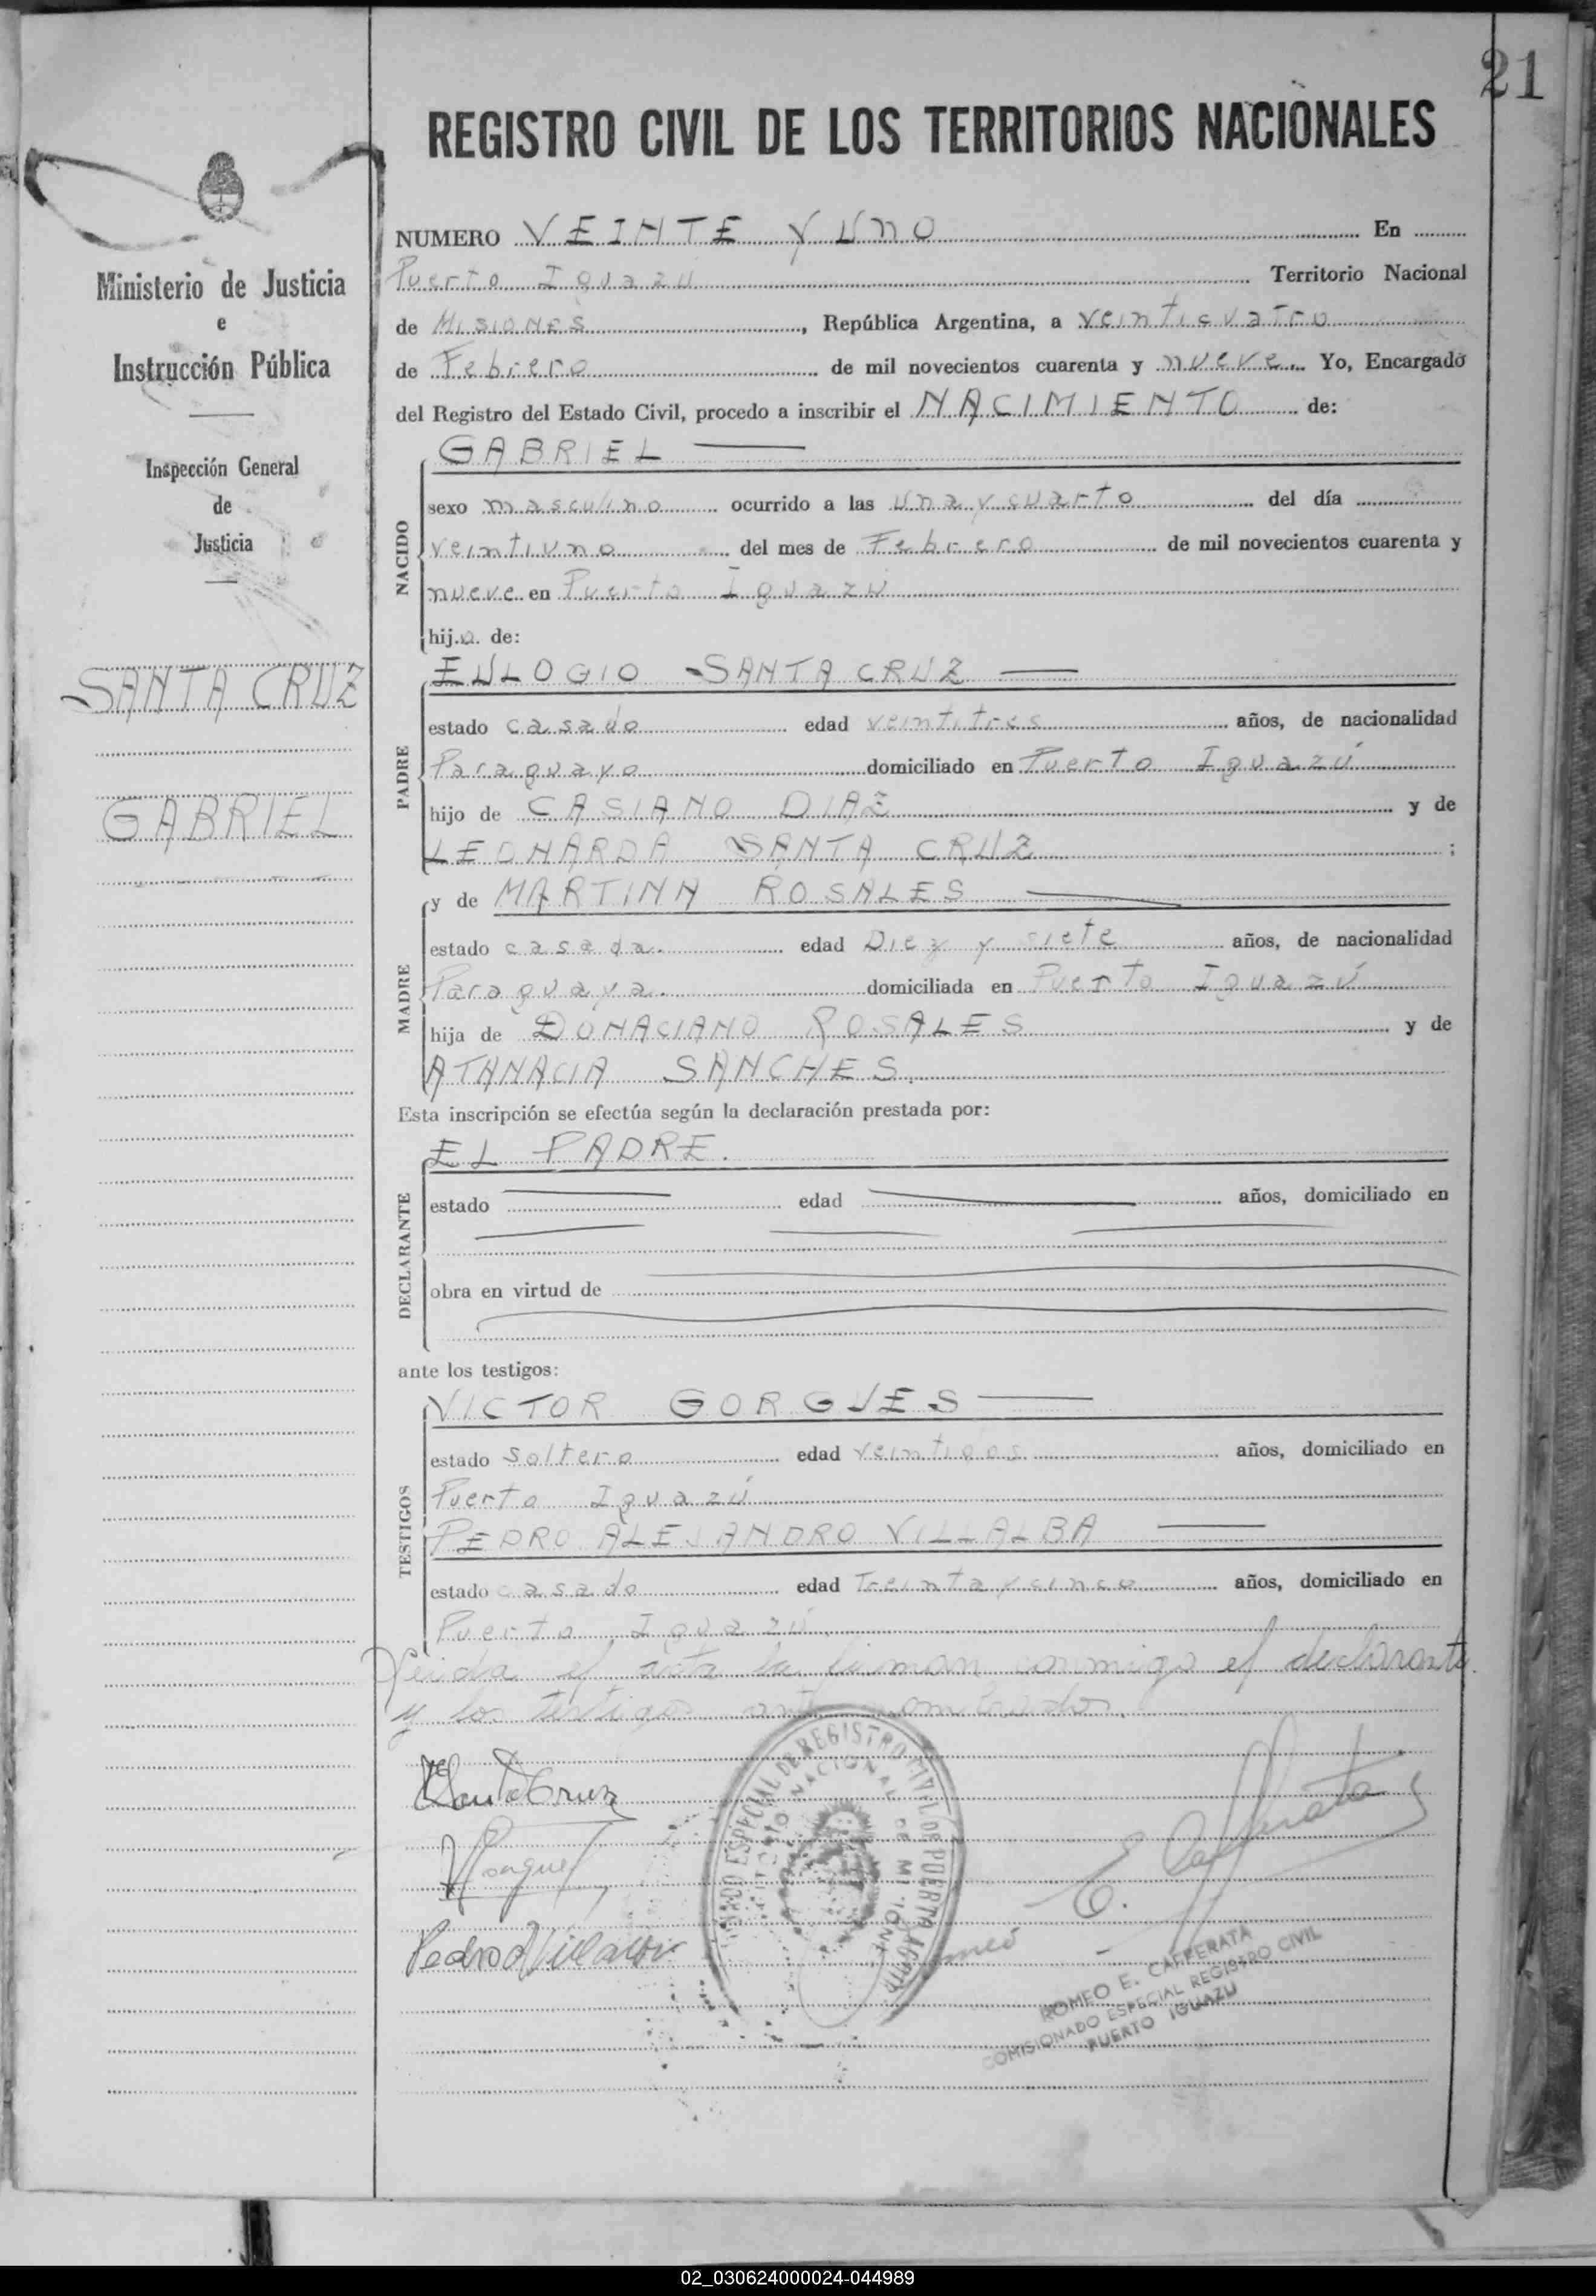 21
REGISTRO CIVIL DE LOS TERRITORIOS NACIONALES
Ministerio de Justicia
e
Instrucción Pública
Inspección General
de
Justicia
SANTA CRUZ
GABRIEL
NUMERO VEINTE Y UNO En
Puerto Iguazú Territorio Nacional
de MISIONES, República Argentina, a veinticuatro
de Febrero de mil novecientos cuarenta y nueve. Yo, Encargado
del Registro del Estado Civil, procedo a inscribir el NACIMIENTO de:
NACIDO
GABRIEL
sexo masculino ocurrido a las una y cuarto del día
veintiuno del mes de Febrero de mil novecientos cuarenta y
nueve en Puerto Iguazú
hijo de:
PADRE
EULOGIO SANTA CRUZ
estado casado edad veintitres años, de nacionalidad
Paraguayo domiciliado en Puerto Iguazú
hijo de CASIANO DIAZ y de
LEONARDA SANTA CRUZ ;
MADRE
y de MARTINA ROSALES
estado casada. edad Diez y siete años, de nacionalidad
Paraguaya. domiciliada en Puerto Iguazú
hija de DONACIANO ROSALES y de
ATANACIA SANCHES.
Esta inscripción se efectúa según la declaración prestada por:
DECLARANTE
EL PADRE.
estado edad años, domiciliado en
obra en virtud de
ante los testigos:
TESTIGOS
VICTOR GORGUES
estado soltero edad veintidos años, domiciliado en
Puerto Iguazú
PEDRO ALEJANDRO VILLALBA
estado casado edad Treinta y cinco años, domiciliado en
Puerto Iguazú.
Leida el acta la firman conmigo el declarante
y los testigos ante nombrados.
SantaCruz
E. Cafferata
Pedro A Villalba
ESPECIAL DE REGISTRO CIVIL DE PUERTO AGUIRRE
NACIONAL DE MISIONES
ROMEO E. CAFFERATA
COMISIONADO ESPECIAL REGISTRO CIVIL
PUERTO IGUAZU
02_030624000024-044989